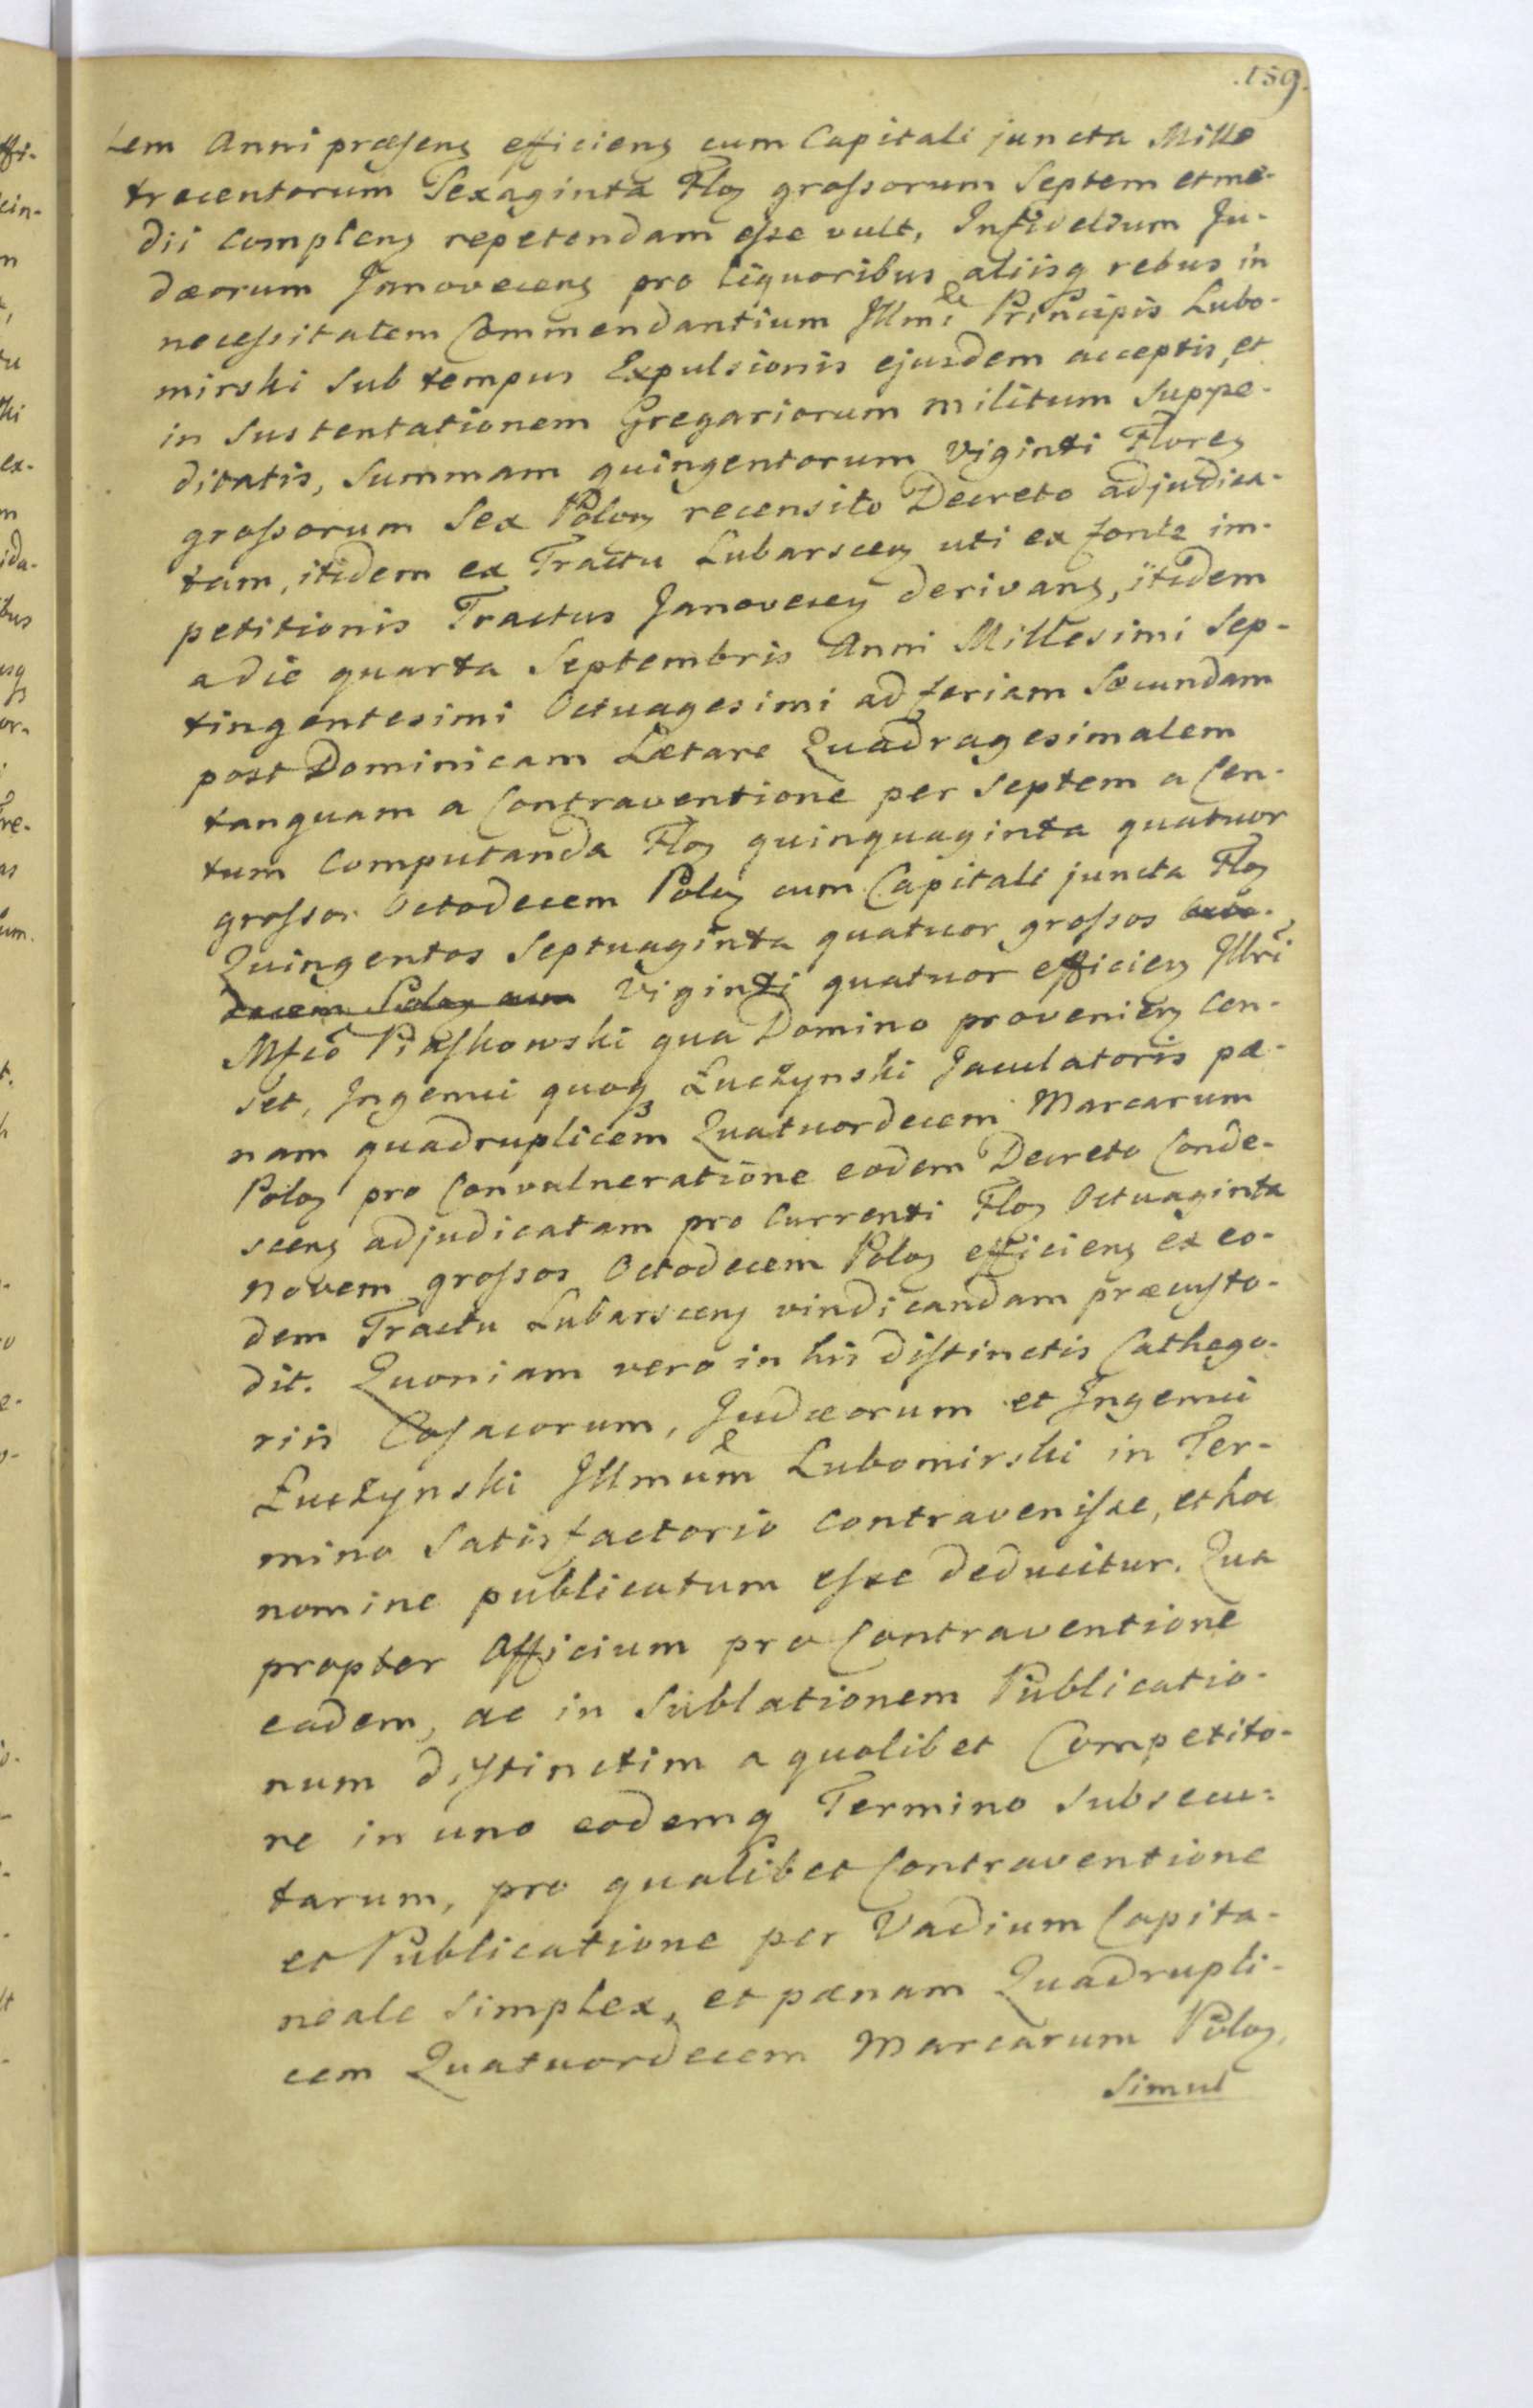 .159.
tem Anni præsens efficiens cum Capitali juncta Mille
trecentorum Sexaginta Floz grossorum Septem et me-
dii complens repetendam esse vult, Infidelium Ju-
dæorum Janovecens pro liquoribus aliisq rebus in
necessitatem Commendantium Illmi Principis Lubo-
mirski sub tempus Expulsionis ejusdem acceptis, et
in sustentationem Gregariorum militum suppe-
ditatis, Summam quingentorum Viginti Florez
grossorum Sex Polon recensito Decreto adjudica-
tam, itidem ex Tractu Lubarscen uti ex fonte im-
petitionis Tractus Janovecen derivans, itidem
a die quarta Septembris Anni Millesimi Sep-
tingentesimi Octuagesimi ad feriam Secundam
post Dominicam Lætare Quadragesimalem
tanquam a Contraventione per Septem a Cen-
tum Computanda Floz quinquaginta quatuor
grossor Octodecem Poloz cum Capitali juncta Floz
Quingentos Septuaginta quatuor grossos octo-
decem Poloz cum Viginti quatuor efficien Illri
Mfco Piaskowski qua Domino provenien Cen-
set, Ingenui quoq Łuczynski Jaculatoris pæ-
nam quadruplicem Quatuordecem Marcarum
Poloz pro Convulneratione eodem Decreto Conde-
scens adjudicatam pro Currenti Floz Octuaginta
Novem grossos Octodecem Poloz efficiens ex eo-
dem Tractu Lubarscens vindicandam præcusto-
dit. Quoniam vero in his distinctis Cathego-
riis Cosacorum, Judæorum et Ingenui
Łuczynski Illmum Lubomirski in Ter-
mino Satisfactorio contravenisse, et hoc
nomine publicatum esse deducitur. Qua
propter Officium pro Contraventione
eadem, ac in Sublationem Publicatio-
num distinctim a quolibet Competito-
re in uno eodemq Termino subsecu-
tarum, pro qualibet Contraventione
et Publicatione per Vadium Capita-
neale Simplex, et pænam Quadrupli-
cem Quatuordecem Marcarum Poloz,
Simul